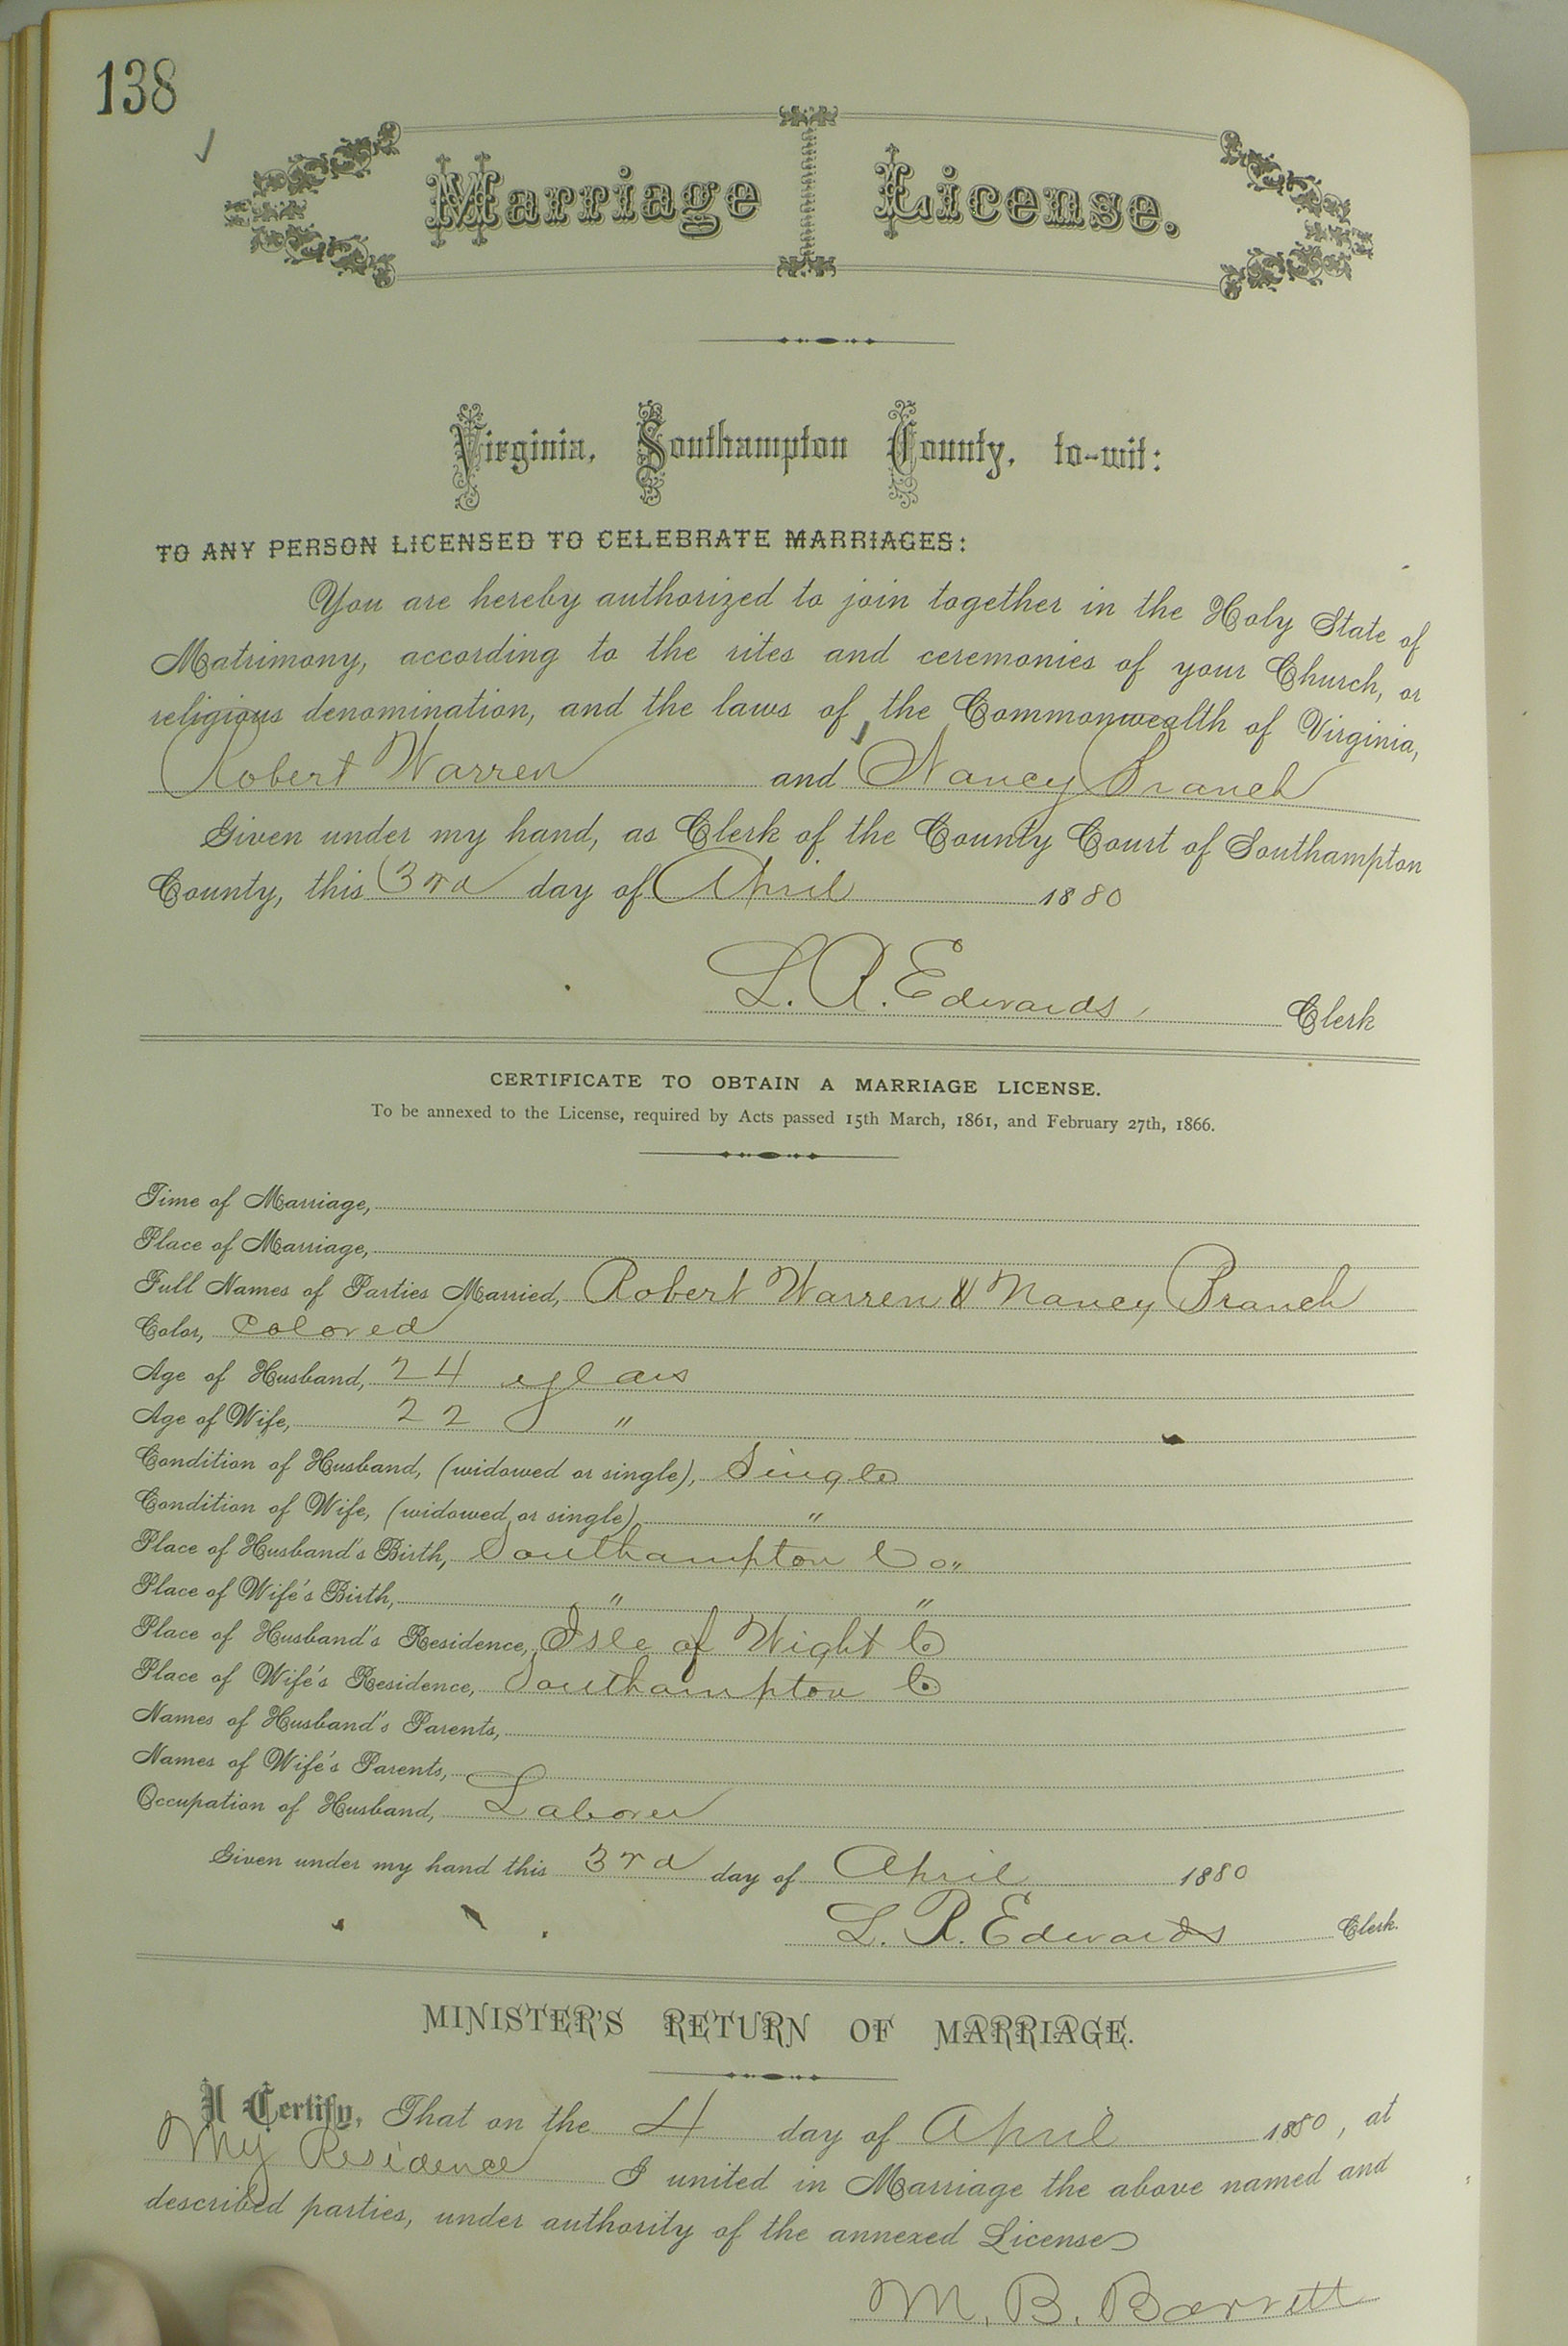 138
Marriage License.
Virginia, Southampton County, to-wit:
TO ANY PERSON LICENSED TO CELEBRATE MARRIAGES:
You are hereby authorized to join together in the Holy State of
Matrimony, according to the rites and ceremonies of your Church, or
religious denomination, and the laws of the Commonwealth of Virginia,
Robert Warren and Nancy Branch
Given under my hand, as Clerk of the County Court of Southampton
County, this 3rd day of April 1880
L. R. Edwards, Clerk
CERTIFICATE TO OBTAIN A MARRIAGE LICENSE.
To be annexed to the License, required by Acts passed 15th March, 1861, and February 27th, 1866.
Time of Marriage,
Place of Marriage,
Full Names of Parties Married, Robert Warren & Nancy Branch
Color, Colored
Age of Husband, 24 years
Age of Wife, 22 "
Condition of Husband, (widowed or single), Single
Condition of Wife, (widowed or single) "
Place of Husband's Birth, Southampton Co,,
Place of Wife's Birth, " "
Place of Husband's Residence, Isle of Wight Co
Place of Wife's Residence, Southampton Co
Names of Husband's Parents,
Names of Wife's Parents,
Occupation of Husband, Laborer
Given under my hand this 3rd day of April 1880
L. R. Edwards Clerk.
MINISTER'S RETURN OF MARRIAGE.
I Certify, That on the 4 day of April 1880, at
My Residence I united in Marriage the above named and
described parties, under authority of the annexed License
M. B. Barrett